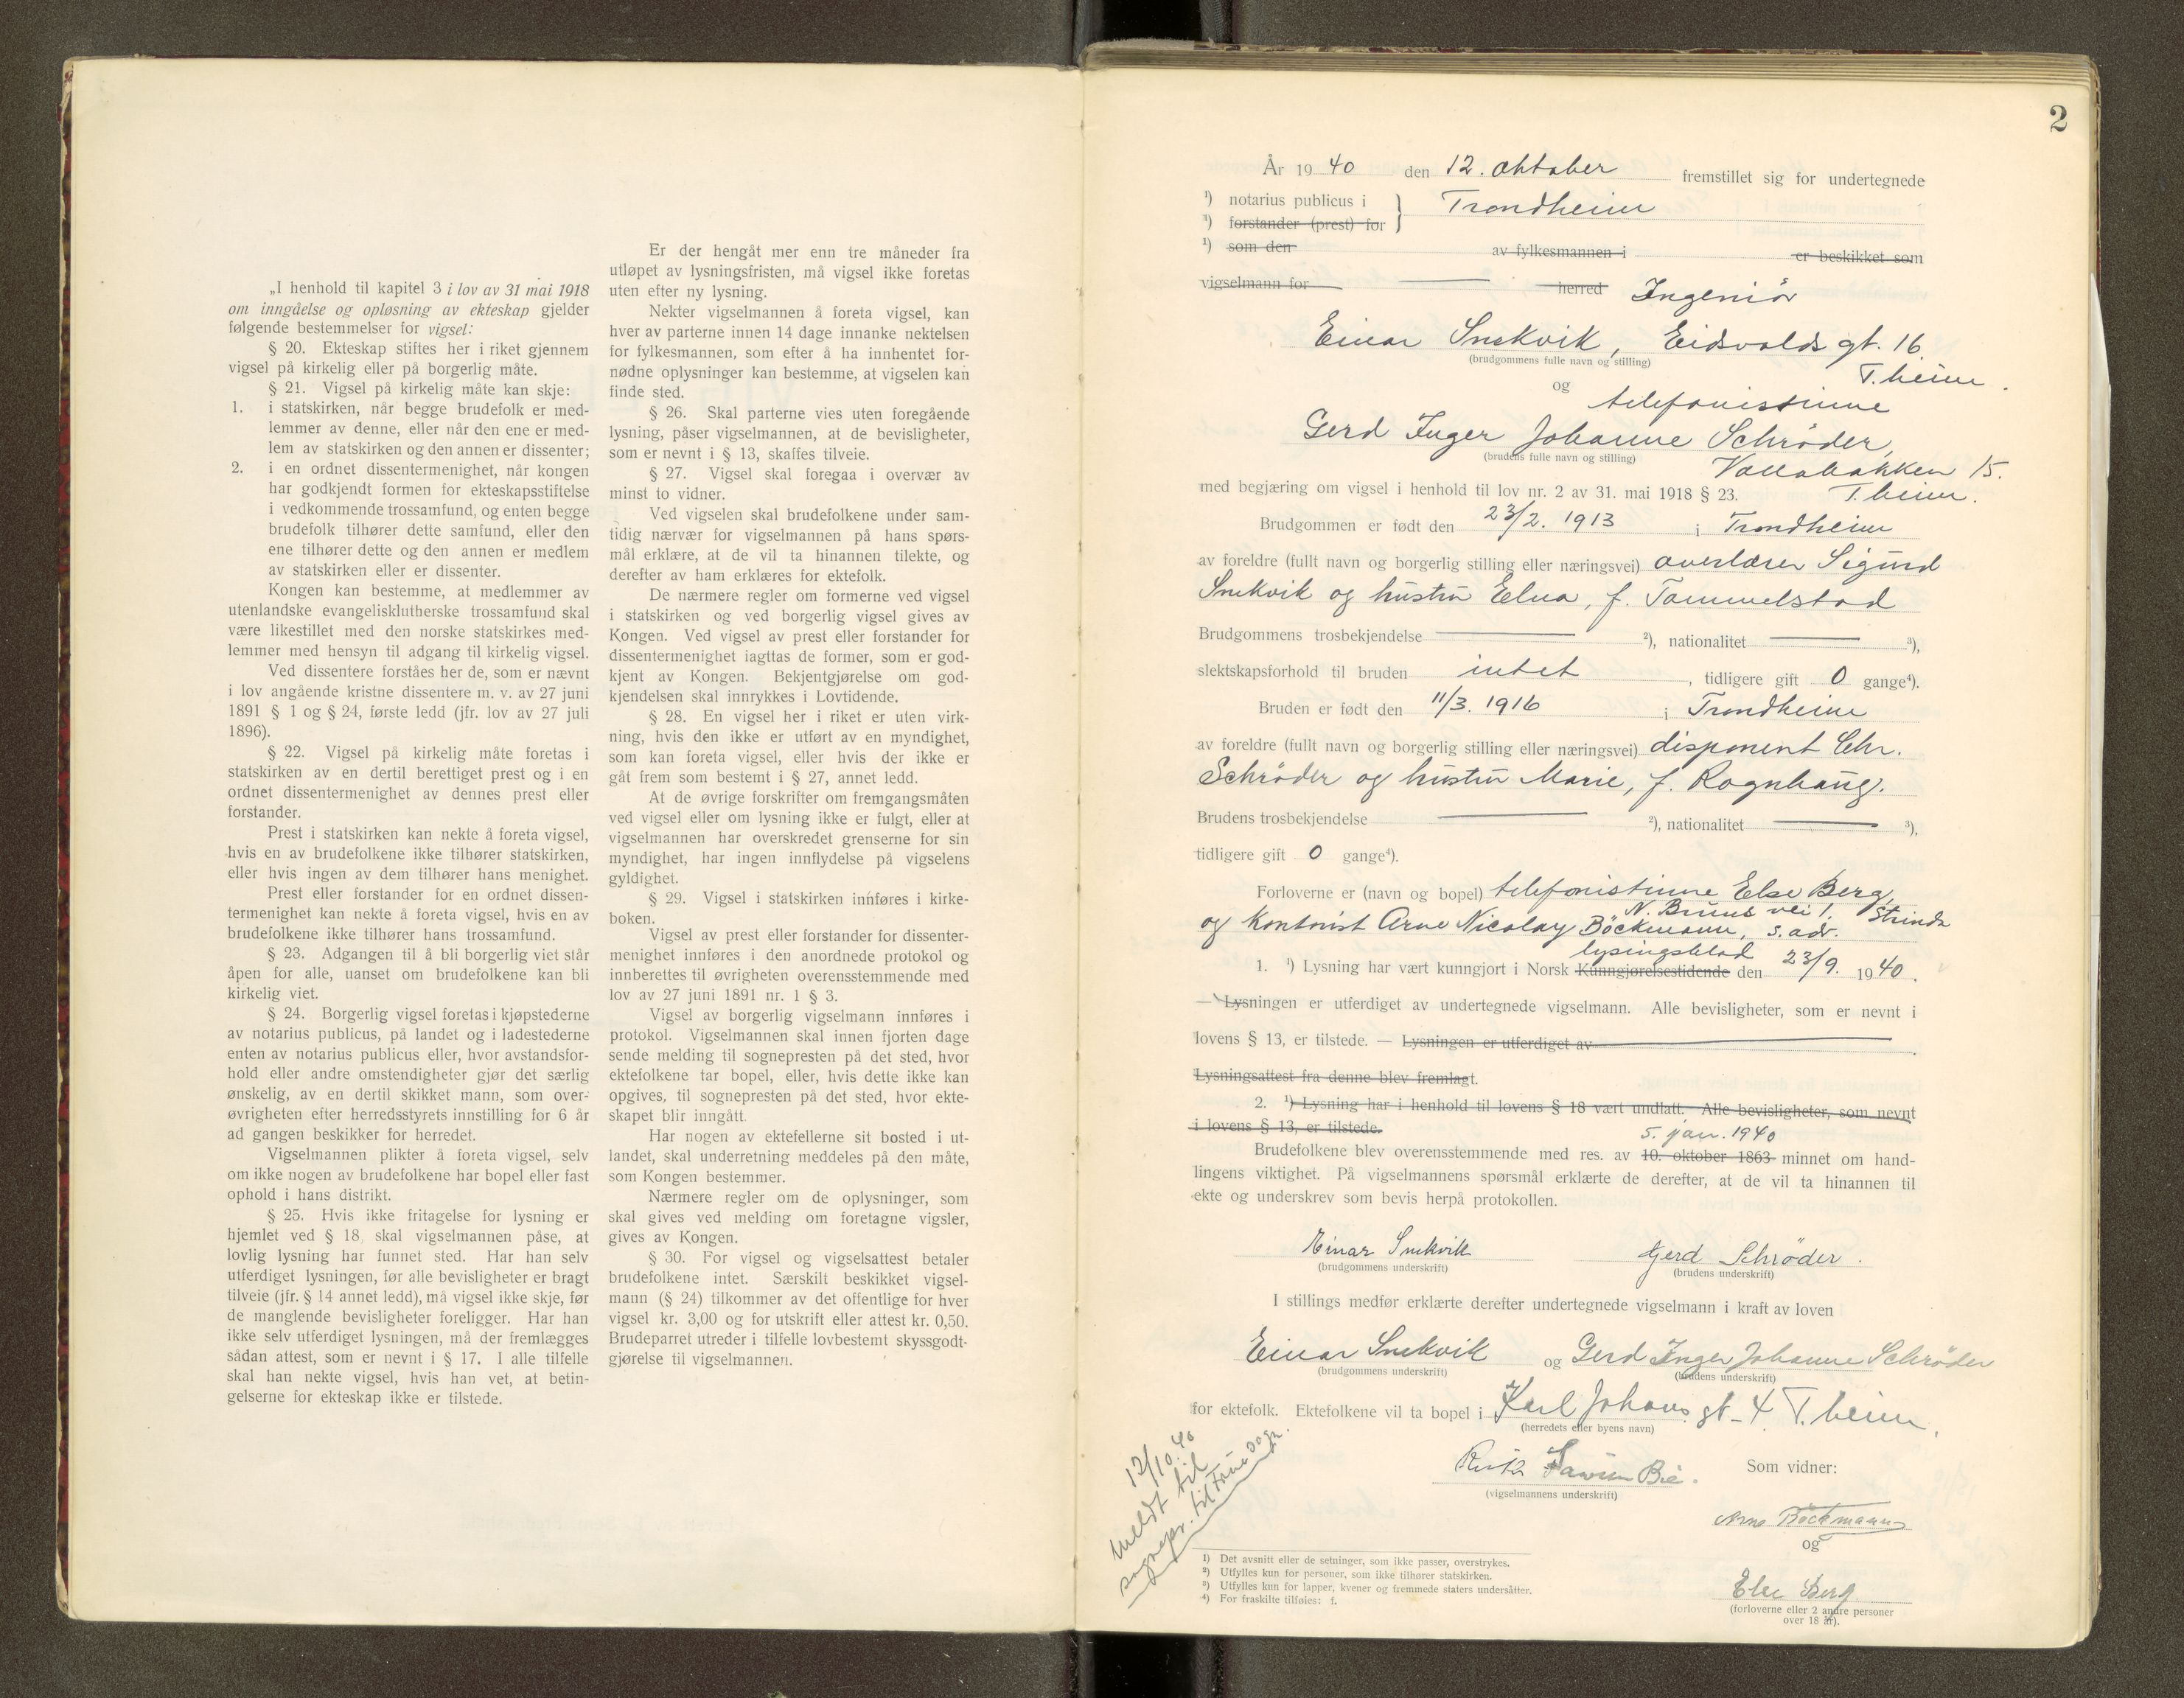 „I henhold til kapitel 3 i lov av 31 mai 1918
om inngåelse og opløsning av ekteskap gjelder
følgende bestemmelser for vigsel:
§ 20. Ekteskap stiftes her i riket gjennem
vigsel på kirkelig eller på borgerlig måte.
§ 21. Vigsel på kirkelig måte kan skje:
1. i statskirken, når begge brudefolk er med-
lemmer av denne, eller når den ene er med-
lem av statskirken og den annen er dissenter;
2. i en ordnet dissentermenighet, når kongen
har godkjendt formen for ekteskapsstiftelse
i vedkommende trossamfund, og enten begge
brudefolk tilhører dette samfund, eller den
ene tilhører dette og den annen er medlem
av statskirken eller er dissenter.
Kongen kan bestemme, at medlemmer av
utenlandske evangelisklutherske trossamfund skal
være likestillet med den norske statskirkes med-
lemmer med hensyn til adgang til kirkelig vigsel.
Ved dissentere forståes her de, som er nævnt
i lov angående kristne dissentere m. v. av 27 juni
1891 § 1 og § 24, første ledd (jfr. lov av 27 juli
1896).
§ 22. Vigsel på kirkelig måte foretas i
statskirken av en dertil berettiget prest og i en
ordnet dissentermenighet av dennes prest eller
forstander.
Prest i statskirken kan nekte å foreta vigsel,
hvis en av brudefolkene ikke tilhører statskirken,
eller hvis ingen av dem tilhører hans menighet.
Prest eller forstander for en ordnet dissen-
termenighet kan nekte å foreta vigsel, hvis en av
brudefolkene ikke tilhører hans trossamfund.
§ 23. Adgangen til å bli borgerlig viet står
åpen for alle, uanset om brudefolkene kan bli
kirkelig viet.
§ 24. Borgerlig vigsel foretas i kjøpstederne
av notarius publicus, på landet og i ladestederne
enten av notarius publicus eller, hvor avstandsfor-
hold eller andre omstendigheter gjør det særlig
ønskelig, av en dertil skikket mann, som over-
øvrigheten efter herredsstyrets innstilling for 6 år
ad gangen beskikker for herredet.
Vigselmannen plikter å foreta vigsel, selv
om ikke nogen av brudefolkene har bopel eller fast
ophold i hans distrikt.
§ 25. Hvis ikke fritagelse for lysning er
hjemlet ved § 18, skal vigselmannen påse, at
lovlig lysning har funnet sted. Har han selv
utferdiget lysningen, før alle bevisligheter er bragt
tilveie (jfr. § 14 annet ledd), må vigsel ikke skje, før
de manglende bevisligheter foreligger. Har han
ikke selv utferdiget lysningen, må der fremlægges
sådan attest, som er nevnt i § 17. I alle tilfelle
skal han nekte vigsel, hvis han vet, at betin-
gelserne for ekteskap ikke er tilstede.
Er der hengåt mer enn tre måneder fra
utløpet av lysningsfristen, må vigsel ikke foretas
uten efter ny lysning.
Nekter vigselmannen å foreta vigsel, kan
hver av parterne innen 14 dage innanke nektelsen
for fylkesmannen, som efter å ha innhentet for-
nødne oplysninger kan bestemme, at vigselen kan
finde sted.
§ 26. Skal parterne vies uten foregående
lysning, påser vigselmannen, at de bevisligheter,
som er nevnt i § 13, skaffes tilveie.
§ 27. Vigsel skal foregaa i overvær av
minst to vidner.
Ved vigselen skal brudefolkene under sam-
tidig nærvær for vigselmannen på hans spørs-
mål erklære, at de vil ta hinannen tilekte, og
derefter av ham erklæres for ektefolk.
De nærmere regler om formerne ved vigsel
i statskirken og ved borgerlig vigsel gives av
Kongen. Ved vigsel av prest eller forstander for
dissentermenighet iagttas de former, som er god-
kjent av Kongen. Bekjentgjørelse om god-
kjendelsen skal innrykkes i Lovtidende.
§ 28. En vigsel her i riket er uten virk-
ning, hvis den ikke er utført av en myndighet,
som kan foreta vigsel, eller hvis der ikke er
gåt frem som bestemt i § 27, annet ledd.
At de øvrige forskrifter om fremgangsmåten
ved vigsel eller om lysning ikke er fulgt, eller at
vigselmannen har overskredet grenserne for sin
myndighet, har ingen innflydelse på vigselens
gyldighet.
§ 29. Vigsel i statskirken innføres i kirke-
boken.
Vigsel av prest eller forstander for dissenter-
menighet innføres i den anordnede protokol og
innberettes til øvrigheten overensstemmende med
lov av 27 juni 1891 nr. 1 § 3.
Vigsel av borgerlig vigselmann innføres i
protokol. Vigselmannen skal innen fjorten dage
sende melding til sognepresten på det sted, hvor
ektefolkene tar bopel, eller, hvis dette ikke kan
opgives, til sognepresten på det sted, hvor ekte-
skapet blir inngått.
Har nogen av ektefellerne sit bosted i ut-
landet, skal underretning meddeles på den måte,
som Kongen bestemmer.
Nærmere regler om de oplysninger, som
skal gives ved melding om foretagne vigsler,
gives av Kongen.
§ 30. For vigsel og vigselsattest betaler
brudefolkene intet. Særskilt beskikket vigsel-
mann (§ 24) tilkommer av det offentlige for hver
vigsel kr. 3,00 og for utskrift eller attest kr. 0,50.
Brudeparret utreder i tilfelle lovbestemt skyssgodt-
gjørelse til vigselmannen.
2
År 1940 den 12. oktober fremstillet sig for undertegnede
¹) notarius publicus i } Trondheim
¹) forstander (prest) for
¹) som den av fylkesmannen i er beskikket som
vigselmann for herred Ingeniör
Einar Snekvik, Eidsvolds gt. 16
(brudgommens fulle navn og stilling)
T.heim.
og
telefonistinne
Gerd Inger Johanne Schröder,
(brudens fulle navn og stilling)
Vollabakken 15.
med begjæring om vigsel i henhold til lov nr. 2 av 31. mai 1918 § 23. T.heim.
Brudgommen er født den 23/2. 1913 i Trondheim
av foreldre (fullt navn og borgerlig stilling eller næringsvei) overlærer Sigurd
Snekvik og hustru Elna, f. Tommelstad
Brudgommens trosbekjendelse ²), nationalitet ³),
slektskapsforhold til bruden intet, tidligere gift 0 gange⁴).
Bruden er født den 11/3. 1916 i Trondheim
av foreldre (fullt navn og borgerlig stilling eller næringsvei) disponent Chr.
Schröder og hustru Marie, f. Rognhaug.
Brudens trosbekjendelse ²), nationalitet ³),
tidligere gift 0 gange⁴).
Forloverne er (navn og bopel) telefonistinne Else Berg,
N. Bruns vei 1. Strinda
og kontorist Arne Nicolay Böckmann, s. adr.
lysingsblad
1. ¹) Lysning har vært kunngjort i Norsk Kunngjørelsestidende den 23/9. 1940.
— Lysningen er utferdiget av undertegnede vigselmann. Alle bevisligheter, som er nevnt i
lovens § 13, er tilstede. — Lysningen er utferdiget av
Lysningsattest fra denne blev fremlagt.
2. ¹) Lysning har i henhold til lovens § 18 vært undlatt. Alle bevisligheter, som nevnt
i lovens § 13, er tilstede.
5. jan. 1940
Brudefolkene blev overensstemmende med res. av 10. oktober 1863 minnet om hand-
lingens viktighet. På vigselmannens spørsmål erklærte de derefter, at de vil ta hinannen til
ekte og underskrev som bevis herpå protokollen.
Einar Snekvik Gerd Schröder.
(brudgommens underskrift) (brudens underskrift)
I stillings medfør erklærte derefter undertegnede vigselmann i kraft av loven
Einar Snekvik og Gerd Inger Johanne Schröder
(brudgommens underskrift) (brudens underskrift)
for ektefolk. Ektefolkene vil ta bopel i Karl Johans gt. 4 T.heim.
(herredets eller byens navn)
Som vidner:
(vigselmannens underskrift)
Arne Böckmann
og
Else Berg
(forloverne eller 2 andre personer
over 18 år).
12/10.40
meldt til
sognepr. til Frue sogn.
¹) Det avsnitt eller de setninger, som ikke passer, overstrykes.
²) Utfylles kun for personer, som ikke tilhører statskirken.
³) Utfylles kun for lapper, kvener og fremmede staters undersåtter.
⁴) For fraskilte tilføies: f.